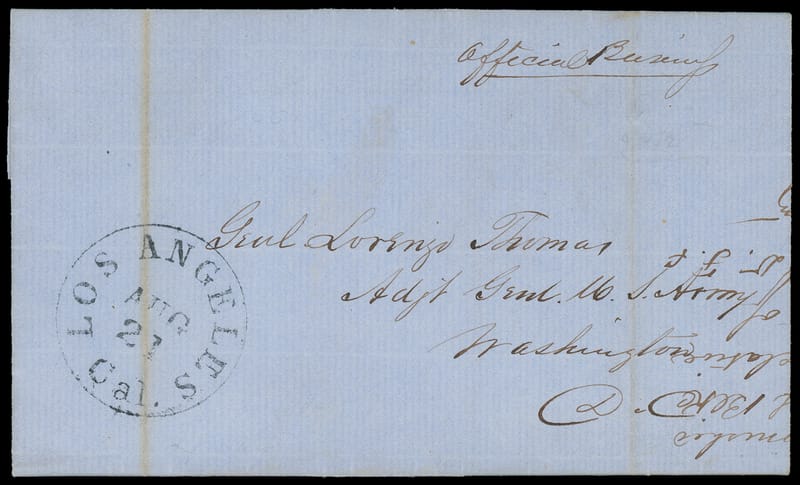 Official Business
Genl Lorenzo Thomas
Adjt Genl. U. S. Army
Washington
D. C.
LOS ANGELES
AUG
27
Cal.